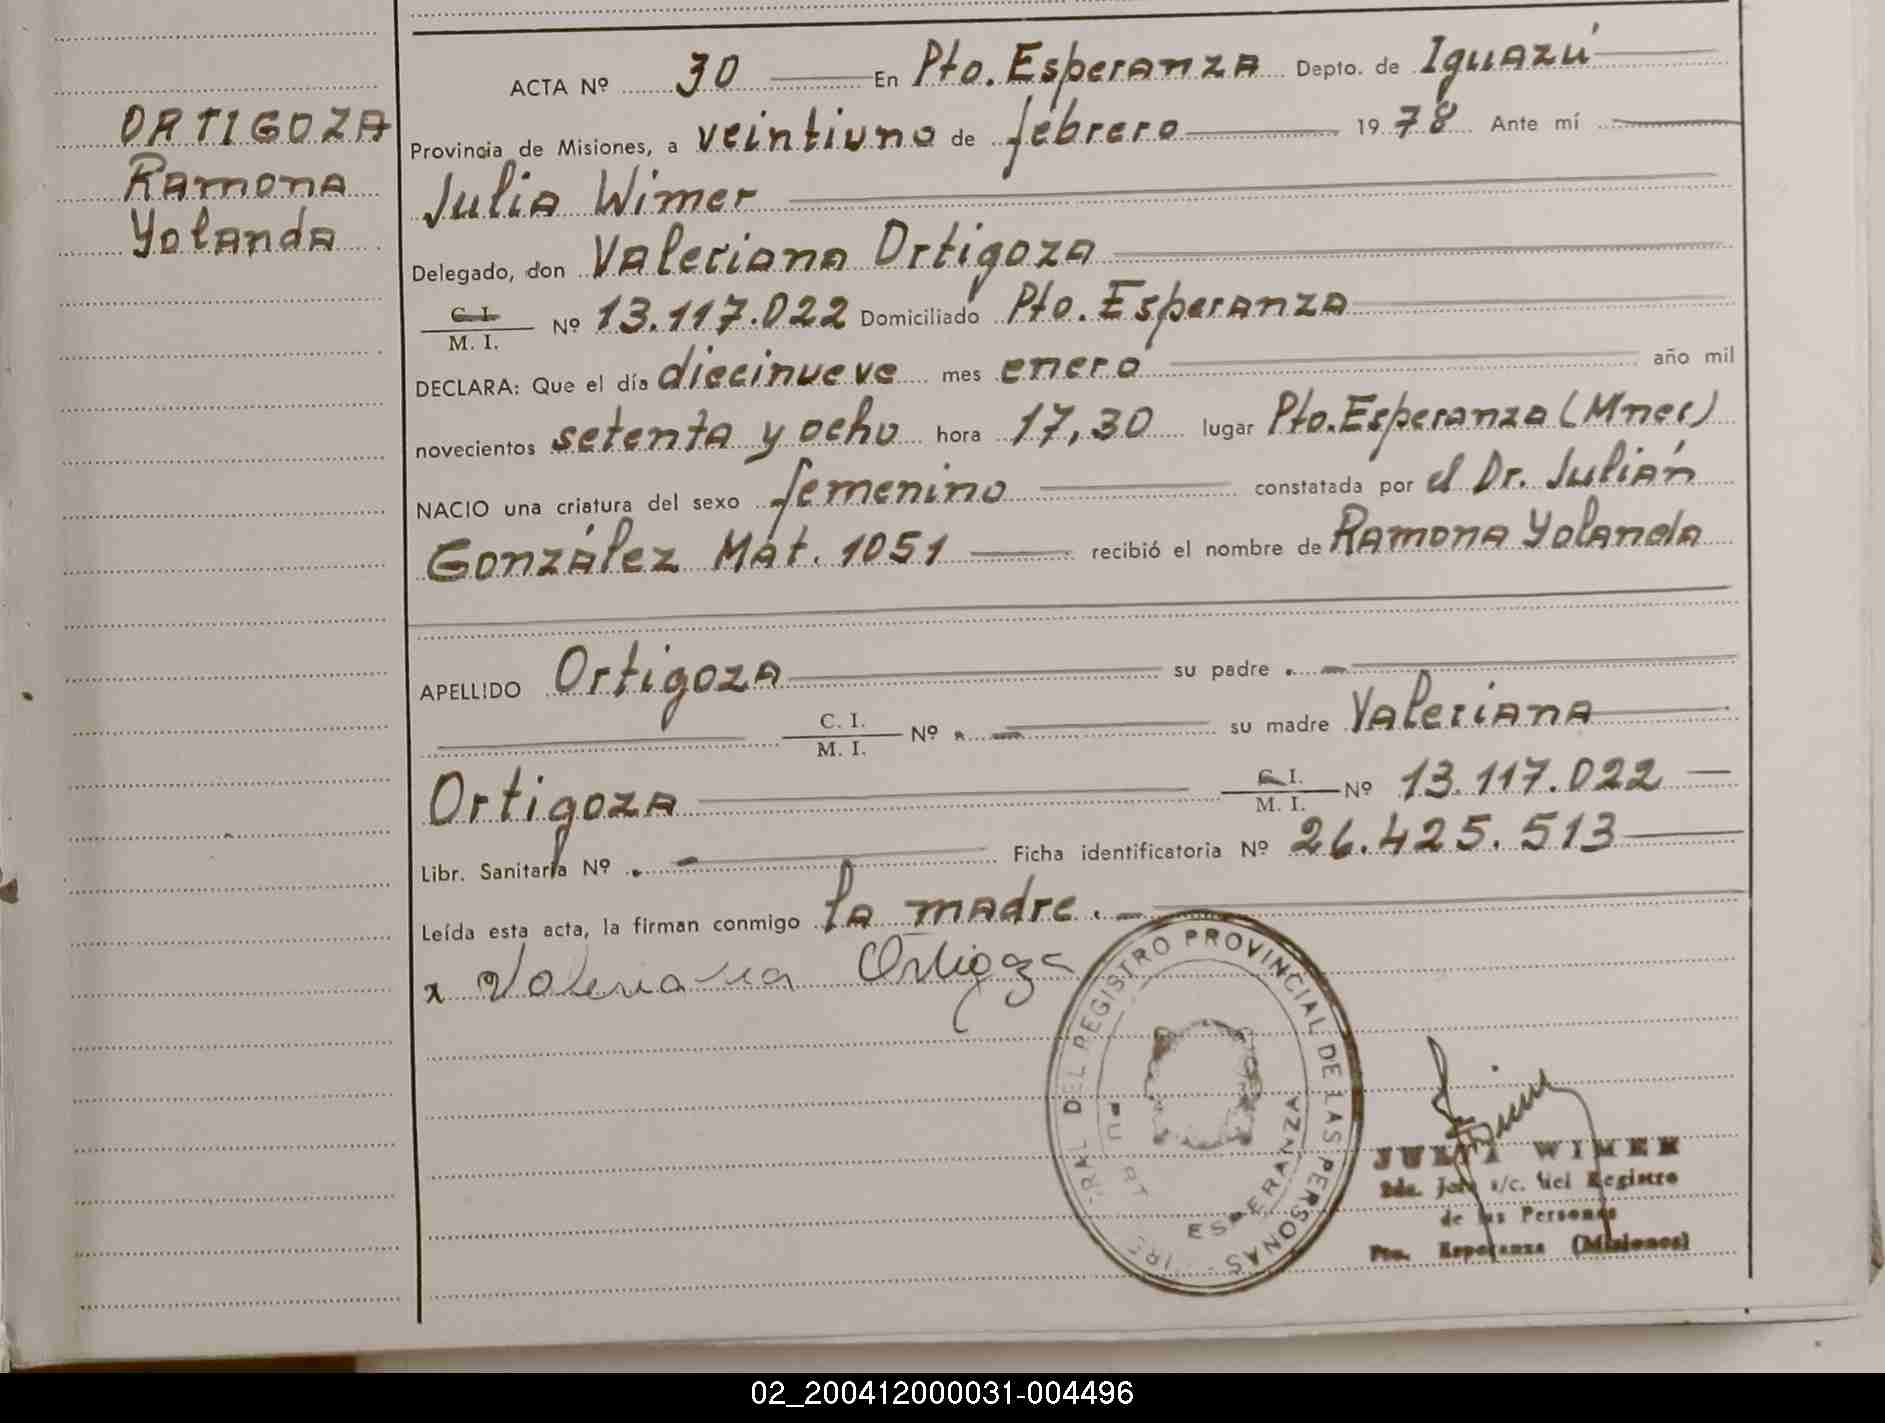 ORTIGOZA
Ramona
Yolanda
ACTA Nº 30 En Pto. Esperanza Depto. de Iguazú
Provincia de Misiones, a veintiuno de febrero 1978 Ante mí
Julia Wimer
Delegado, don Valeriana Ortigoza
C. I.
M. I. Nº 13.117.022 Domiciliado Pto. Esperanza
DECLARA: Que el día diecinueve mes enero año mil
novecientos setenta y ocho hora 17,30 lugar Pto. Esperanza (Mnes)
NACIO una criatura del sexo femenino constatada por el Dr. Julián
González Mat. 1051 recibió el nombre de Ramona Yolanda
APELLIDO Ortigoza su padre . —
C. I.
M. I. Nº . — su madre Valeriana
Ortigoza C. I.
M. I. Nº 13.117.022 —
Libr. Sanitaria Nº . — Ficha identificatoria Nº 26.425.513
Leída esta acta, la firman conmigo la madre. —
x Valeriana Ortigoza
DEL REGISTRO PROVINCIAL DE LAS PERSONAS
ESPERANZA
JULIA WIMER
2da. Jefe a/c. del Registro
de las Personas
Pto. Esperanza (Misiones)
02_200412000031-004496